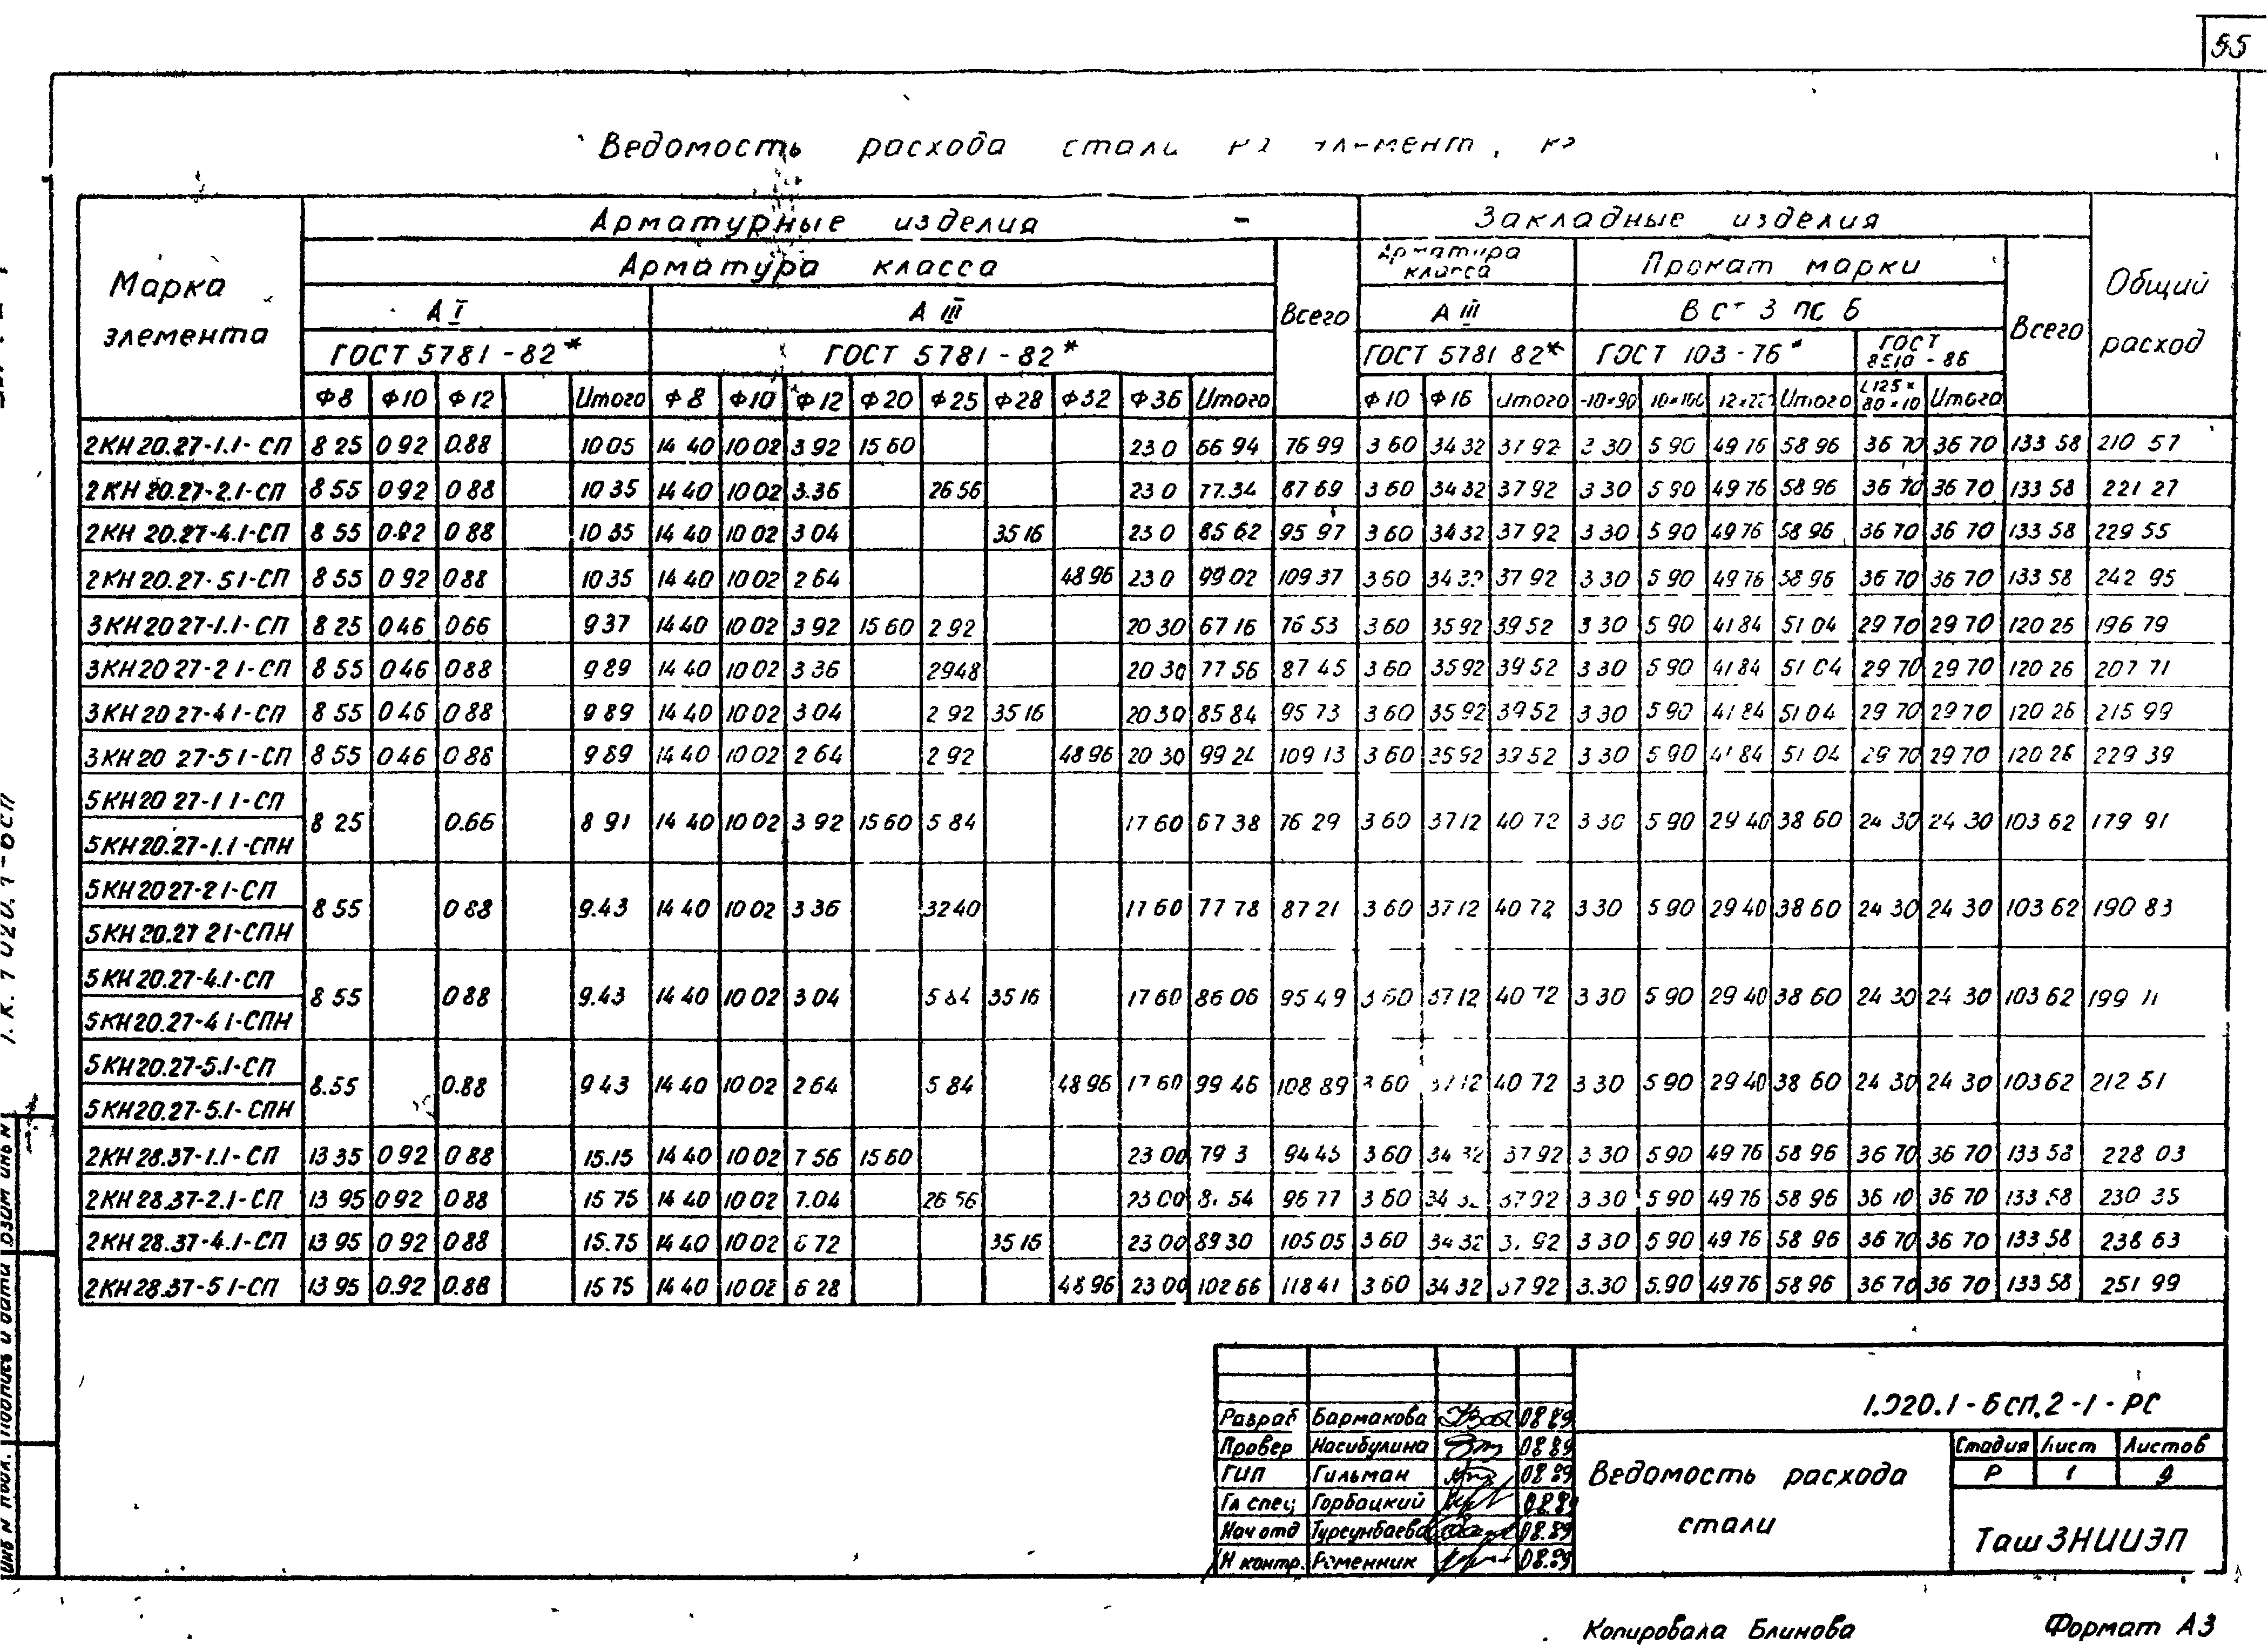 55
Ведомость расхода стали
Арматурные изделия - Закладные изделия
Марка элемента
Арматура класса
Всего
Арматура класса
Прокат марки
Всего
Общий расход
А I А III А III В Ст 3 пс 6
ГОСТ 5781-82* ГОСТ 5781-82* ГОСТ 5781 82* ГОСТ 103-76* ГОСТ 8510-86
Ф8 Ф10 Ф12 Итого Ф8 Ф10 Ф12 Ф20 Ф25 Ф28 Ф32 Ф36 Итого Ф10 Ф16 Итого -10×90 Итого L125×80×10 Итого
2КН20.27-1.1-СП 8 25 0 92 0.88 10 05 14 40 10 02 3 92 15 60 23 0 66 94 76 99 3 60 34 32 37 92 3 30 5 90 49 76 58 96 36 70 36 70 133 58 210 57
2КН 20.27-2.1-СП 8 55 0 92 0 88 10 35 14 40 10 02 3.36 26 56 23 0 77.34 87 69 3 60 34 32 37 92 3 30 5 90 49 76 58 96 36 70 36 70 133 58 221 27
2КН 20.27-4.1-СП 8 55 0.92 0 88 10 35 14 40 10 02 3 04 35 16 23 0 85 62 95 97 3 60 34 32 37 92 3 30 5 90 49 76 58 96 36 70 36 70 133 58 229 55
2КН 20.27-5 1-СП 8 55 0 92 0 88 10 35 14 40 10 02 2 64 48 96 23 0 99 02 109 37 3 60 34 32 37 92 3 30 5 90 49 76 58 96 36 70 36 70 133 58 242 95
3КН20 27-1.1-СП 8 25 0 46 0 66 9 37 14 40 10 02 3 92 15 60 2 92 20 30 67 16 76 53 3 60 35 92 39 52 3 30 5 90 41 84 51 04 29 70 29 70 120 26 196 79
3КН20 27-2 1-СП 8 55 0 46 0 88 9 89 14 40 10 02 3 36 29 48 20 30 77 56 87 45 3 60 35 92 39 52 3 30 5 90 41 84 51 04 29 70 29 70 120 26 207 71
3КН20 27-4 1-СП 8 55 0 46 0 88 9 89 14 40 10 02 3 04 2 92 35 16 20 30 85 84 95 73 3 60 35 92 39 52 3 30 5 90 41 84 51 04 29 70 29 70 120 26 215 99
3КН20 27-5 1-СП 8 55 0 46 0 88 9 89 14 40 10 02 2 64 2 92 48 96 20 30 99 24 109 13 3 60 35 92 39 52 3 30 5 90 41 84 51 04 29 70 29 70 120 26 229 39
5КН20 27-1 1-СП
8 25 0.66 8 91 14 40 10 02 3 92 15 60 5 84 17 60 67 38 76 29 3 60 37 12 40 72 3 30 5 90 29 40 38 60 24 30 24 30 103 62 179 91
5КН20.27-1.1-СПН
5КН20 27-2 1-СП
8 55 0 88 9.43 14 40 10 02 3 36 32 40 17 60 77 78 87 21 3 60 37 12 40 72 3 30 5 90 29 40 38 60 24 30 24 30 103 62 190 83
5КН20.27 2 1-СПН
5КН20.27-4.1-СП
8 55 0 88 9.43 14 40 10 02 3 04 5 84 35 16 17 60 86 06 95 49 3 60 37 12 40 72 3 30 5 90 29 40 38 60 24 30 24 30 103 62 199 11
5КН20.27-4 1-СПН
5КН20.27-5.1-СП
8.55 0.88 9 43 14 40 10 02 2 64 5 84 48 96 17 60 99 46 108 89 3 60 37 12 40 72 3 30 5 90 29 40 38 60 24 30 24 30 103 62 212 51
5КН20.27-5.1-СПН
2КН28.37-1.1-СП 13 35 0 92 0 88 15.15 14 40 10 02 7 56 15 60 23 00 79 3 94 45 3 60 34 32 37 92 3 30 5 90 49 76 58 96 36 70 36 70 133 58 228 03
2КН28.37-2.1-СП 13 95 0 92 0 88 15 75 14 40 10 02 7.04 26 56 23 00 54 96 77 3 60 37 92 3 30 5 90 49 76 58 96 36 70 36 70 133 58 230 35
2КН28.37-4.1-СП 13 95 0 92 0 88 15.75 14 40 10 02 6 72 35 16 23 00 89 30 105 05 3 60 34 32 37 92 3 30 5 90 49 76 58 96 36 70 36 70 133 58 238 63
2КН28.37-5 1-СП 13 95 0.92 0.88 15 75 14 40 10 02 6 28 48 96 23 00 102 66 118 41 3 60 34 32 37 92 3.30 5.90 49 76 58 96 36 70 36 70 133 58 251 99
1.020.1-6сп.2-1-РС
Разраб Бармакова 08.89
Провер Насибулина 08 89
ГИП Гильман 08 89
Гл спец Горбацкий 08.89
Нач отд Турсунбаева 08.89
Н контр. Раменник 08.89
Ведомость расхода стали
Стадия Лист Листов
Р 1 9
ТашЗНИИЭП
Копировала Блинова Формат А3
Инв N подл. Подпись и дата Взам инв N